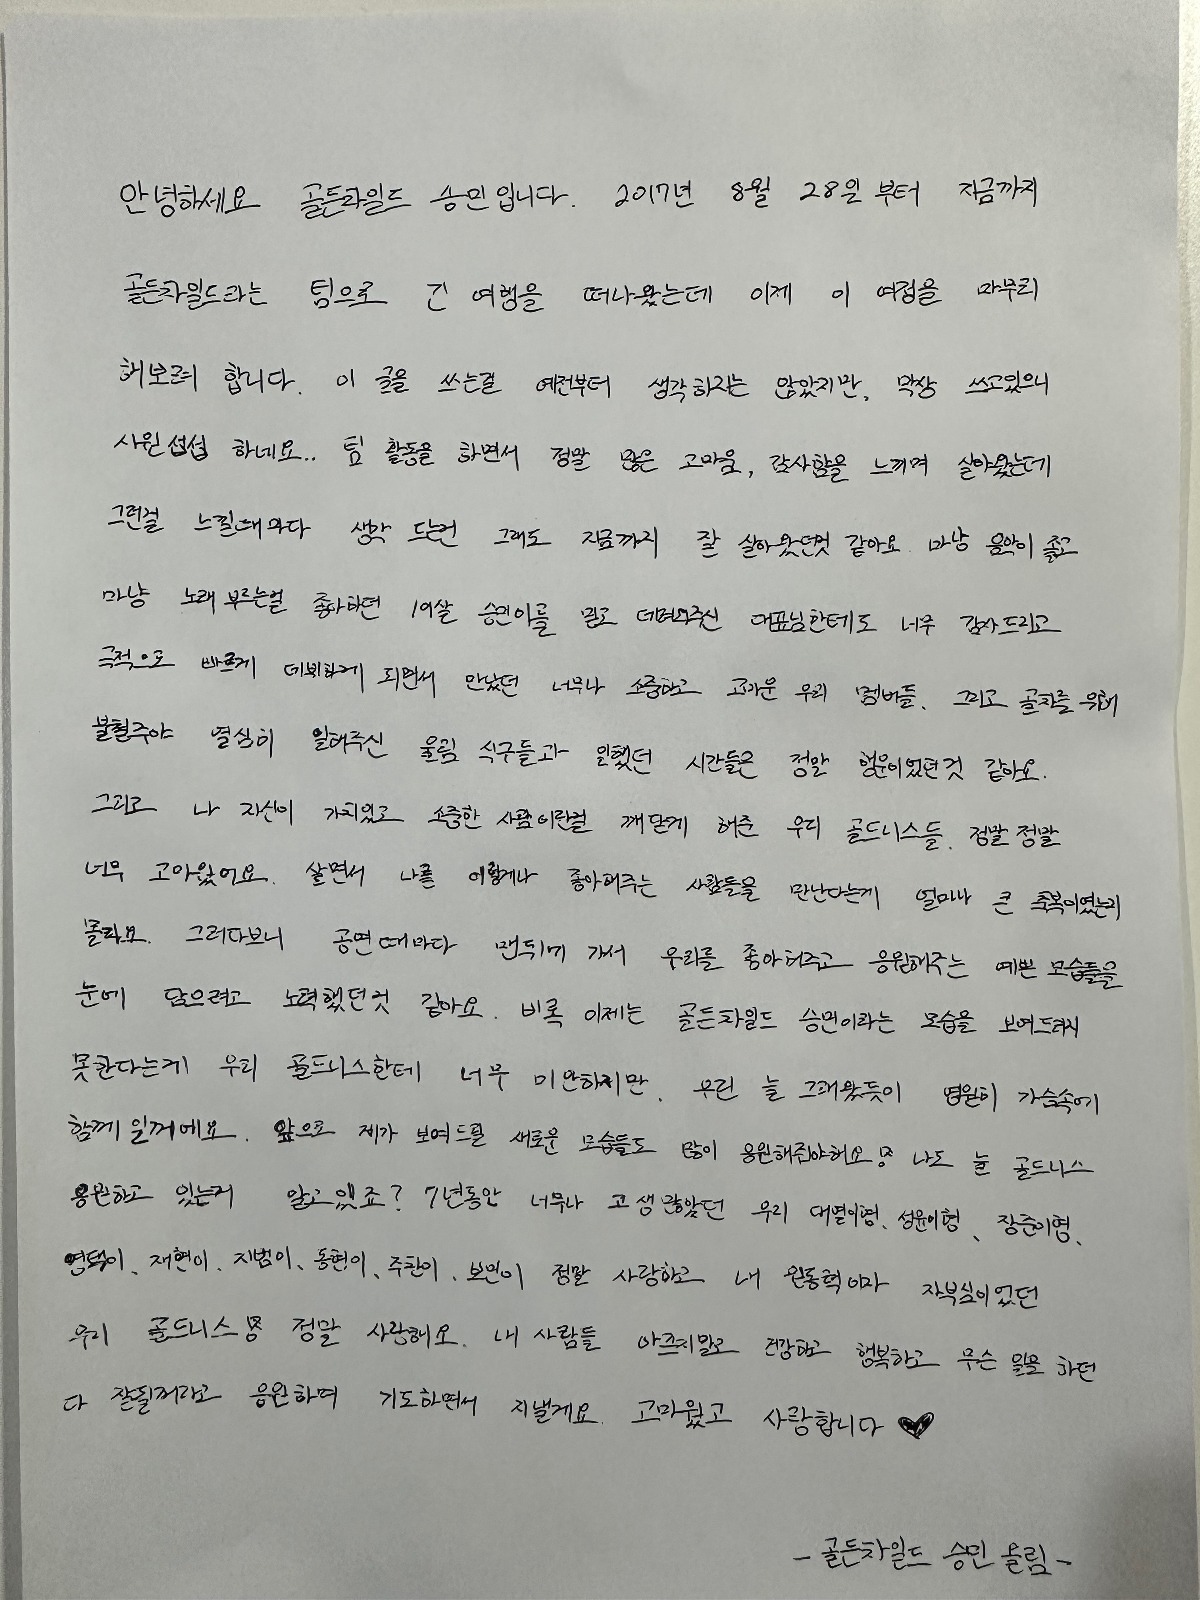 안녕하세요 골든차일드 승민입니다. 2017년 8월 28일부터 지금까지
골든차일드라는 팀으로 긴 여행을 떠나왔는데 이제 이 여정을 마무리
해보려 합니다. 이 글을 쓰는걸 예전부터 생각하지는 않았지만, 막상 쓰고있으니
시원섭섭 하네요.. 팀 활동을 하면서 정말 많은 고마움, 감사함을 느끼며 살아왔는데
그런걸 느낄때마다 생각 드는건 그래도 지금까지 잘 살아왔던것 같아요 마냥 음악이 좋고
마냥 노래 부르는걸 좋아하던 19살 승민이를 믿고 데려와주신 대표님한테도 너무 감사드리고
극적으로 빠르게 데뷔하게 되면서 만났던 너무나 소중하고 고마운 우리 멤버들, 그리고 골차를 위해
불철주야 열심히 일해주신 울림 식구들과 일했던 시간들은 정말 행운이었던것 같아요.
그리고 나 자신이 가치있고 소중한 사람이란걸 깨닫게 해준 우리 골드니스들, 정말 정말
너무 고마웠어요. 살면서 나를 이렇게나 좋아해주는 사람들을 만난다는게 얼마나 큰 축복이였는지
몰라요. 그러다보니 공연때마다 맨뒤에 가서 우리를 좋아해주고 응원해주는 예쁜 모습들을
눈에 담으려고 노력했던것 같아요. 비록 이제는 골든차일드 승민이라는 모습을 보여드리지
못한다는게 우리 골드니스한테 너무 미안하지만, 우린 늘 그래왔듯이 영원히 가슴속에
함께일꺼에요. 앞으로 제가 보여드릴 새로운 모습들도 많이 응원해줘야해요 나도 늘 골드니스
응원하고 있는거 알고있죠? 7년동안 너무나 고생많았던 우리 대열이형, 성윤이형, 장준이형,
영택이, 재현이, 지범이, 동현이, 주찬이, 보민이 정말 사랑하고 내 원동력이자 자부심이었던
우리 골드니스 정말 사랑해요. 내 사람들 아프지말고 건강하고 행복하고 무슨 일을 하던
다 잘될꺼라고 응원하며 기도하면서 지낼게요. 고마웠고 사랑합니다 ♥
- 골든차일드 승민 올림 -